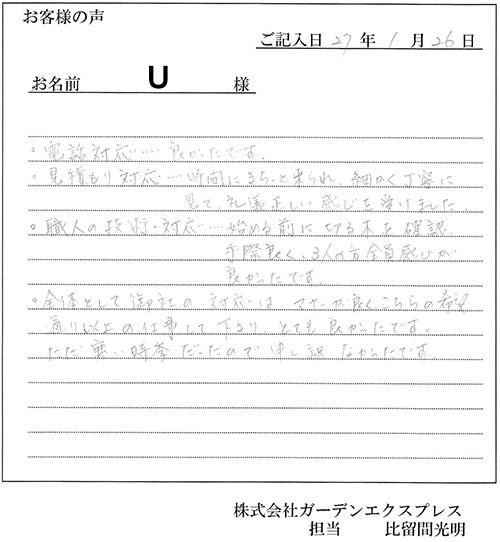 お客様の声
ご記入日 27 年 1 月 26 日
お名前 U 様
。電話対応……良かったです。
。見積もり対応…時間にきちっと来られ、細かく丁寧に
見て、礼儀正しい感じを受けました。
。職人の技術・対応……始める前に切る木を確認、
手際良く、3人の方全員感じが
良かったです。
。全体として御社の対応は、マナーが良く、こちらの希望
通り以上の仕事して下さり、とても良かったです。
ただ寒い時季だったので申し訳なかったです。
株式会社ガーデンエクスプレス
担当 比留間光明